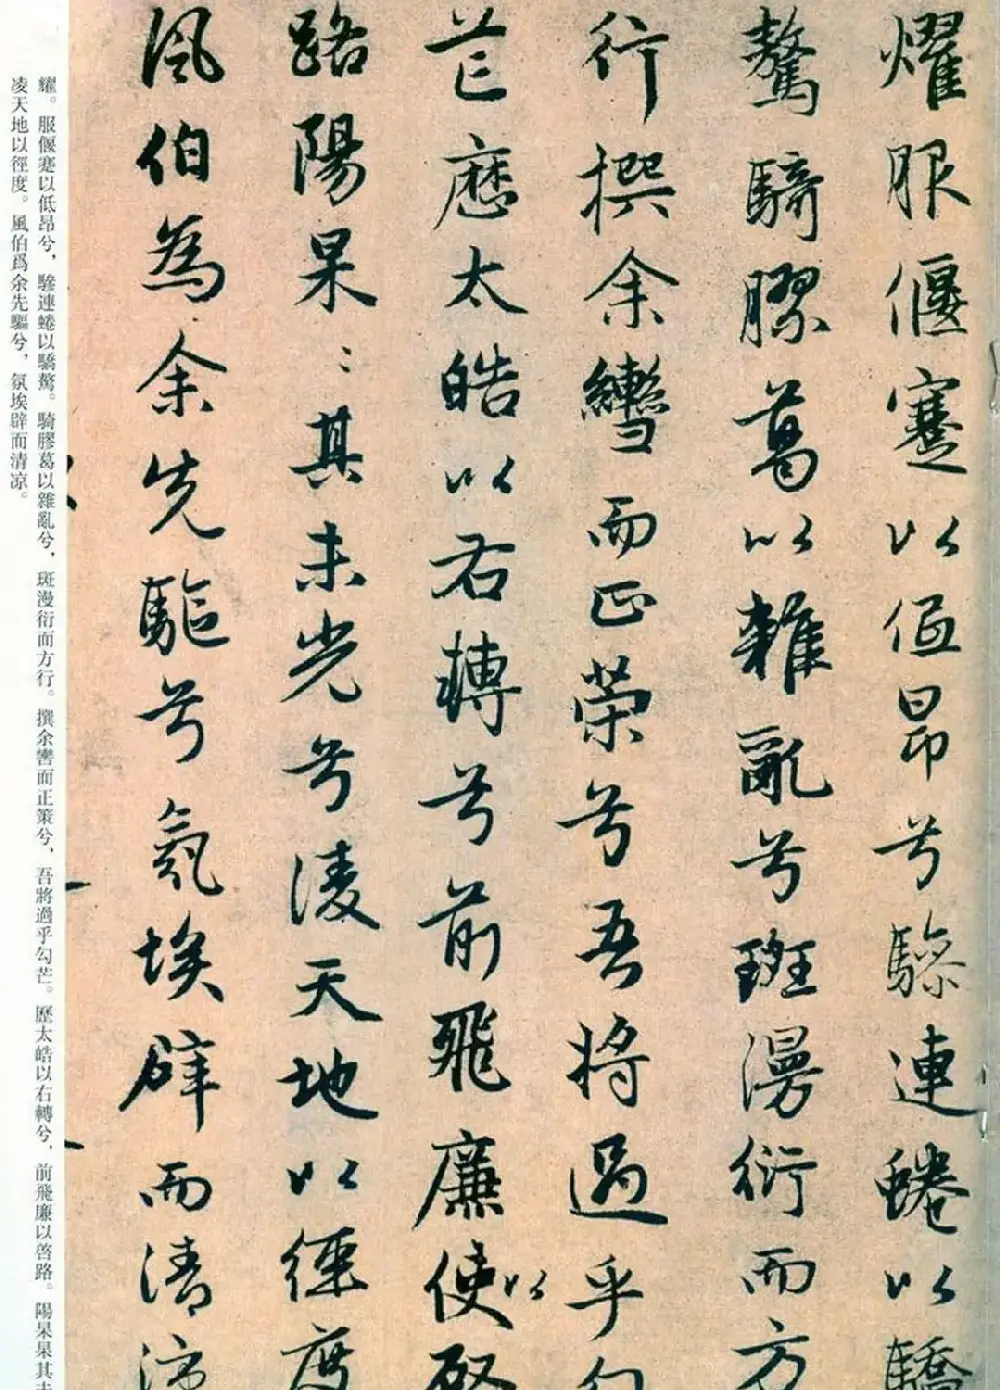 耀服偃蹇以低昂兮驂連蜷以驕
驁騎膠葛以雜亂兮斑漫衍而方
行撰余轡而正策兮吾將過乎勾
芒歷太皓以右轉兮前飛廉使以啓
路陽杲〻其未光兮凌天地以徑度
風伯為余先驅兮氛埃辟而清涼
耀。服偃蹇以低昂兮，驂連蜷以驕驁。騎膠葛以雜亂兮，斑漫衍而方行。撰余轡而正策兮，吾將過乎勾芒。歷太皓以右轉兮，前飛廉以啓路。陽杲杲其未
凌天地以徑度。風伯爲余先驅兮，氛埃辟而清凉。